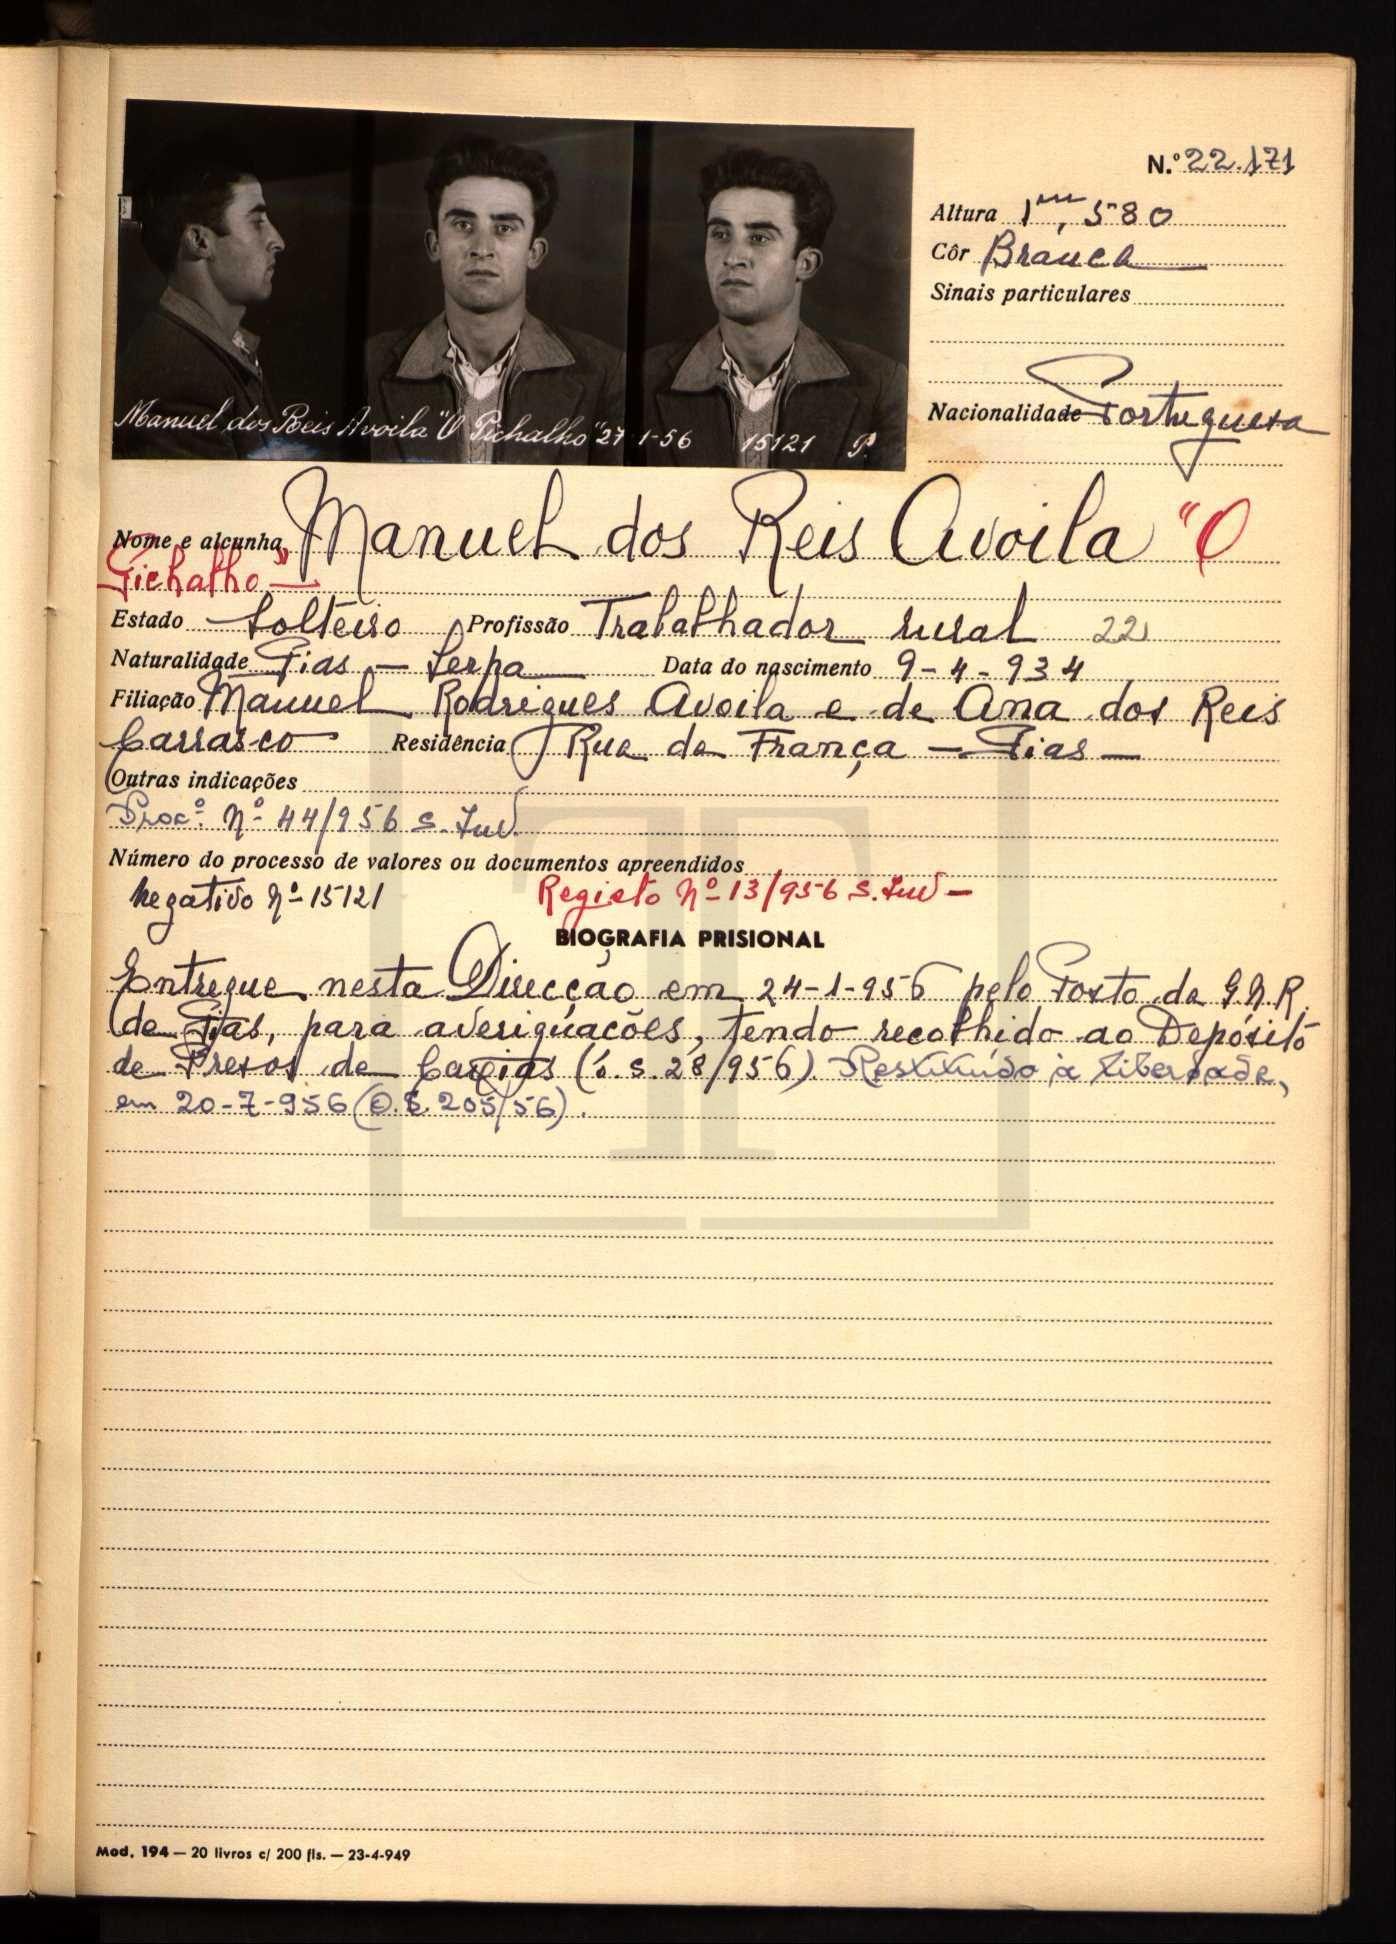 N.º 22.171
Altura 1m,580
Côr Branca
Sinais particulares
Nacionalidade Portuguesa
Manuel dos Reis Avoila "O Pichalho" 27-1-56 15121 P.
Nome e alcunha Manuel dos Reis Avoila "O
Pichalho"
Estado Solteiro Profissão Trabalhador rural 22
Naturalidade Pias - Serpa Data do nascimento 9-4-934
Filiação Manuel Rodrigues Avoila e de Ana dos Reis
Carrasco Residência Rua da França - Pias -
Outras indicações
Proc.º Nº 44/956 S. Inv.
Número do processo de valores ou documentos apreendidos
Negativo Nº 15121 Registo Nº 13/956 S. Inv -
BIOGRAFIA PRISIONAL
Entregue nesta Direcção em 24-1-956 pelo Posto da G.N.R.
de Pias, para averiguações, tendo recolhido ao Depósito
de Presos de Caxias (O.S. 28/956). Restituído à liberdade,
em 20-7-956 (O.S. 205/56).
Mod. 194 — 20 livros c/ 200 fls. — 23-4-949